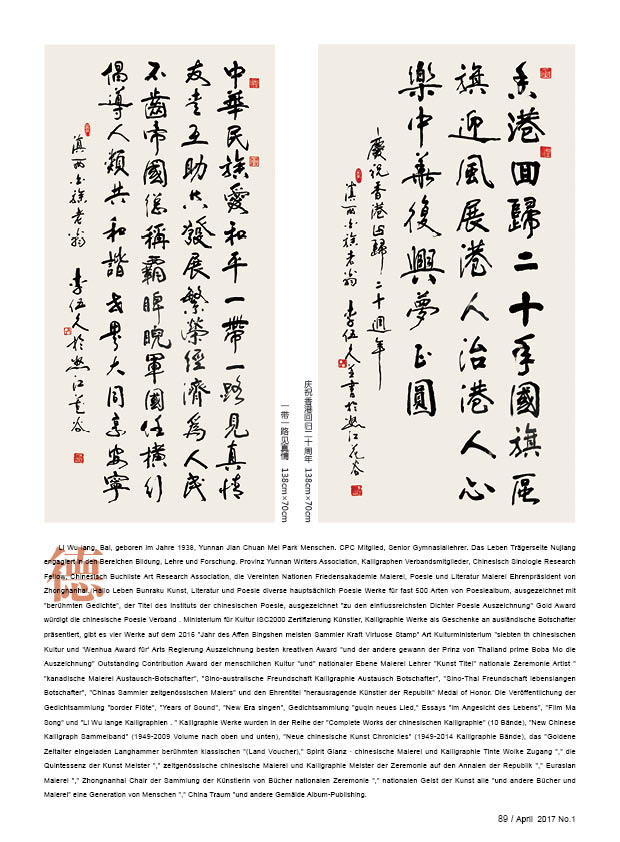 中華民族愛和平一帶一路見真情
友善互助共發展繁榮經濟為人民
不齒帝國稱霸睥睨軍國任橫行
倡導人類共和諧世界大同享安寧
滇西白族老翁
李伍久於怒江
一带一路见真情 138cm×70cm
香港回歸二十年國旗區
旗迎風展港人治港人心
樂中華復興夢正圓
慶祝香港回歸二十週年
滇西白族老翁
李伍久並書於怒江花谷
庆祝香港回归二十周年 138cm×70cm
德
Li Wujiang, Bai, geboren im Jahre 1938, Yunnan Jian Chuan Mei Park Menschen. CPC Mitglied, Senior Gymnasiallehrer. Das Leben Trägerseite Nujiang
engagiert in den Bereichen Bildung, Lehre und Forschung. Provinz Yunnan Writers Association, Kalligraphen Verbandsmitglieder, Chinesisch Sinologie Research
Fellow, Chinesisch Buchliste Art Research Association, die Vereinten Nationen Friedensakademie Malerei, Poesie und Literatur Malerei Ehrenpräsident von
Zhongnanhai. Hallo Leben Bunraku Kunst, Literatur und Poesie diverse hauptsächlich Poesie Werke für fast 500 Arten von Poesiealbum, ausgezeichnet mit
"berühmten Gedichte", der Titel des Instituts der chinesischen Poesie, ausgezeichnet "zu den einflussreichsten Dichter Poesie Auszeichnung" Gold Award
würdigt die chinesische Poesie Verband . Ministerium für Kultur ISC2000 Zertifizierung Künstler, Kalligraphie Werke als Geschenke an ausländische Botschafter
präsentiert, gibt es vier Werke auf dem 2016 "Jahr des Affen Bingshen meisten Sammler Kraft Virtuose Stamp" Art Kulturministerium "siebten th chinesischen
Kultur und 'Wenhua Award für' Arts Regierung Auszeichnung besten kreativen Award "und der andere gewann der Prinz von Thailand prime Boba Mo die
Auszeichnung" Outstanding Contribution Award der menschlichen Kultur "und" nationaler Ebene Malerei Lehrer "Kunst Titel" nationale Zeremonie Artist "
"kanadische Malerei Austausch-Botschafter", "Sino-australische Freundschaft Kalligraphie Austausch Botschafter", "Sino-Thai Freundschaft lebenslangen
Botschafter", "Chinas Sammler zeitgenössischen Malers" und den Ehrentitel "herausragende Künstler der Republik" Medal of Honor. Die Veröffentlichung der
Gedichtsammlung "border Flöte", "Years of Sound", "New Era singen", Gedichtsammlung "guqin neues Lied," Essays "im Angesicht des Lebens", "Film Ma
Song" und "Li Wu lange Kalligraphien . " Kalligraphie Werke wurden in der Reihe der "Complete Works der chinesischen Kalligraphie" (10 Bände), "New Chinese
Kalligraph Sammelband" (1949-2009 Volume nach oben und unten), "Neue chinesische Kunst Chronicles" (1949-2014 Kalligraphie Bände), das "Goldene
Zeitalter eingeladen Langhammer berühmten klassischen "(Land Voucher)," Spirit Glanz - chinesische Malerei und Kalligraphie Tinte Wolke Zugang "," die
Quintessenz der Kunst Meister "," zeitgenössische chinesische Malerei und Kalligraphie Meister der Zeremonie auf den Annalen der Republik "," Eurasian
Malerei "," Zhongnanhai Chair der Sammlung der Künstlerin von Bücher nationalen Zeremonie "," nationalen Geist der Kunst alle "und andere Bücher und
Malerei" eine Generation von Menschen "," China Traum "und andere Gemälde Album-Publishing.
89 / April 2017 No.1